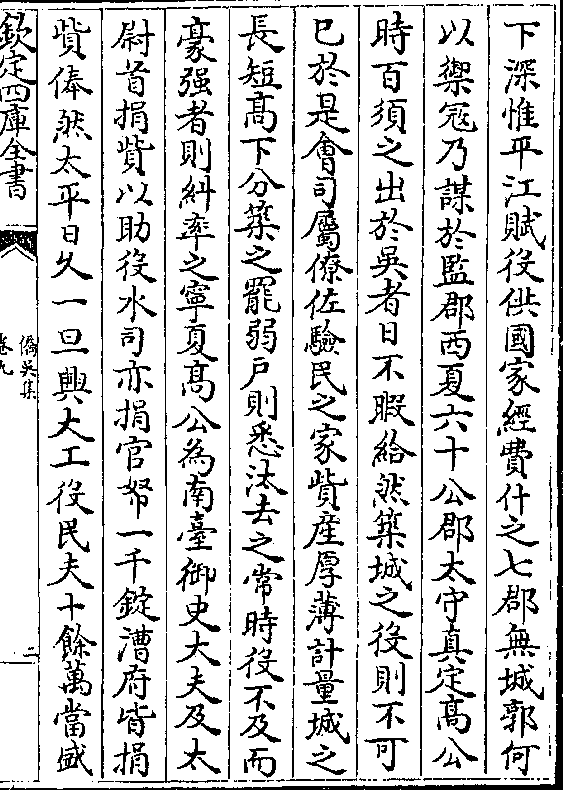 下深惟平江賦役供國家經費什之七郡無城郭何
以禦冦乃謀於監郡西夏六十公郡太守真定髙公
時百須之出於吳者日不暇給然築城之役則不可
已於是會司屬僚佐驗民之家貲産厚薄計量城之
長短髙下分築之罷弱戶則悉汰去之常時役不及而
豪强者則糾率之寧夏髙公為南臺御史大夫及太
尉首捐貲以助役水司亦捐官帑一千錠漕府皆捐
貲俸然太平日乆一旦興大工役民夫十餘萬當盛
欽定四庫全書
僑吳集
卷九
二